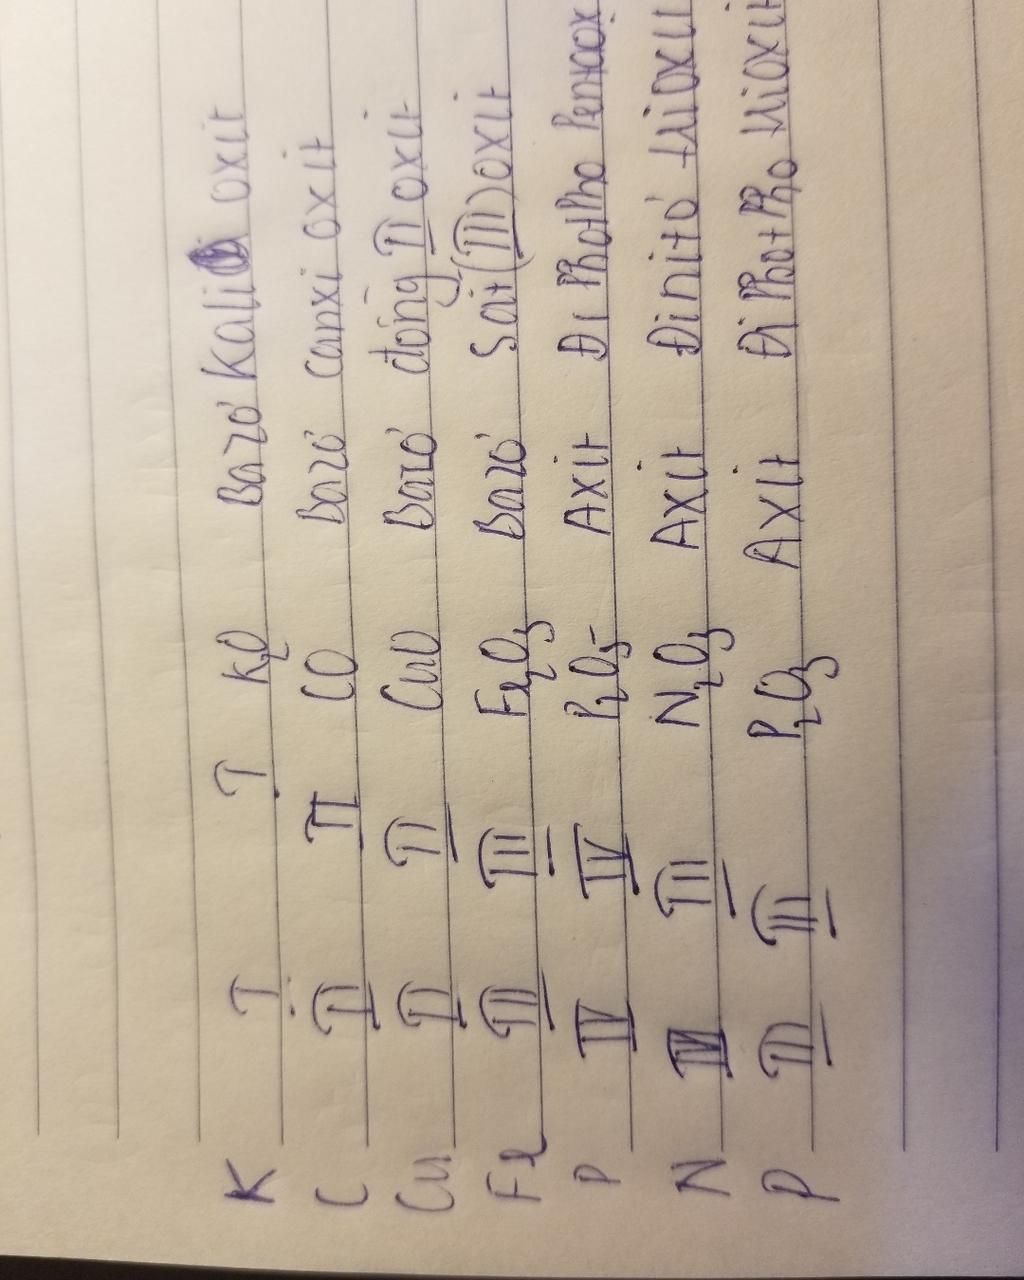 K I I K₂O Bazơ Kali oxit
C II II CO Bazơ canxi oxit
Cu II II CuO Bazơ đồng II oxit
Fe III III Fe₂O₃ Bazơ Sắt (III) oxit
P IV IV P₂O₅ Axit Đi Phot Pho Pentaox
N III N₂O₃ Axit Đinitơ trioxit
P III III P₂O₃ Axit Đi Phot Pho trioxit